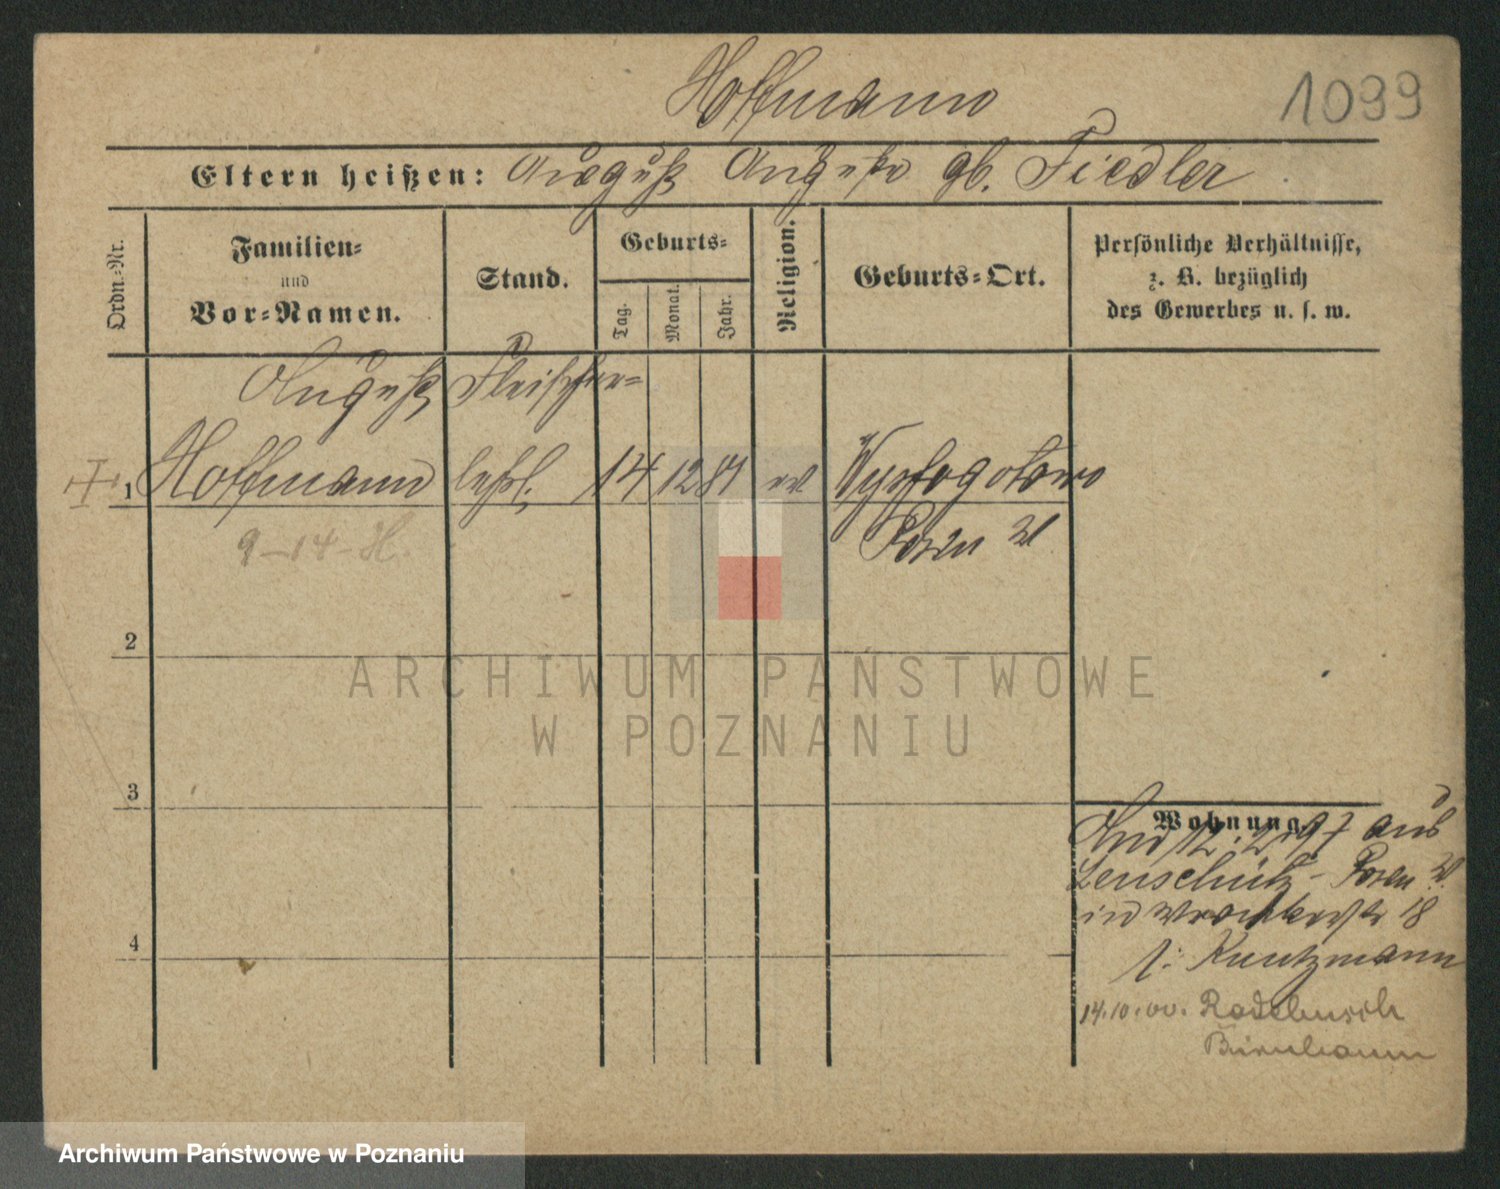 Hoffmann
1099
Eltern heißen: August Auguste gb. Fiedler
Ordn.-Nr.
Familien-
und
Vor-Namen.
Stand.
Geburts-
Tag.
Monat.
Jahr.
Religion.
Geburts-Ort.
Persönliche Verhältnisse,
z. B. bezüglich
des Gewerbes u. s. w.
August Fleischer-
1 Hoffmann lehrl. 14 12 81 ev Wysogotowo
Posen W
9-14-H.
2
3
4
Wohnung.
12. 2. 97 aus
Posen W.
in 18
b: Kuntzmann
14.10.00. Radebusch
Birnbaum
ARCHIWUM PAŃSTWOWE
W POZNANIU
Archiwum Państwowe w Poznaniu